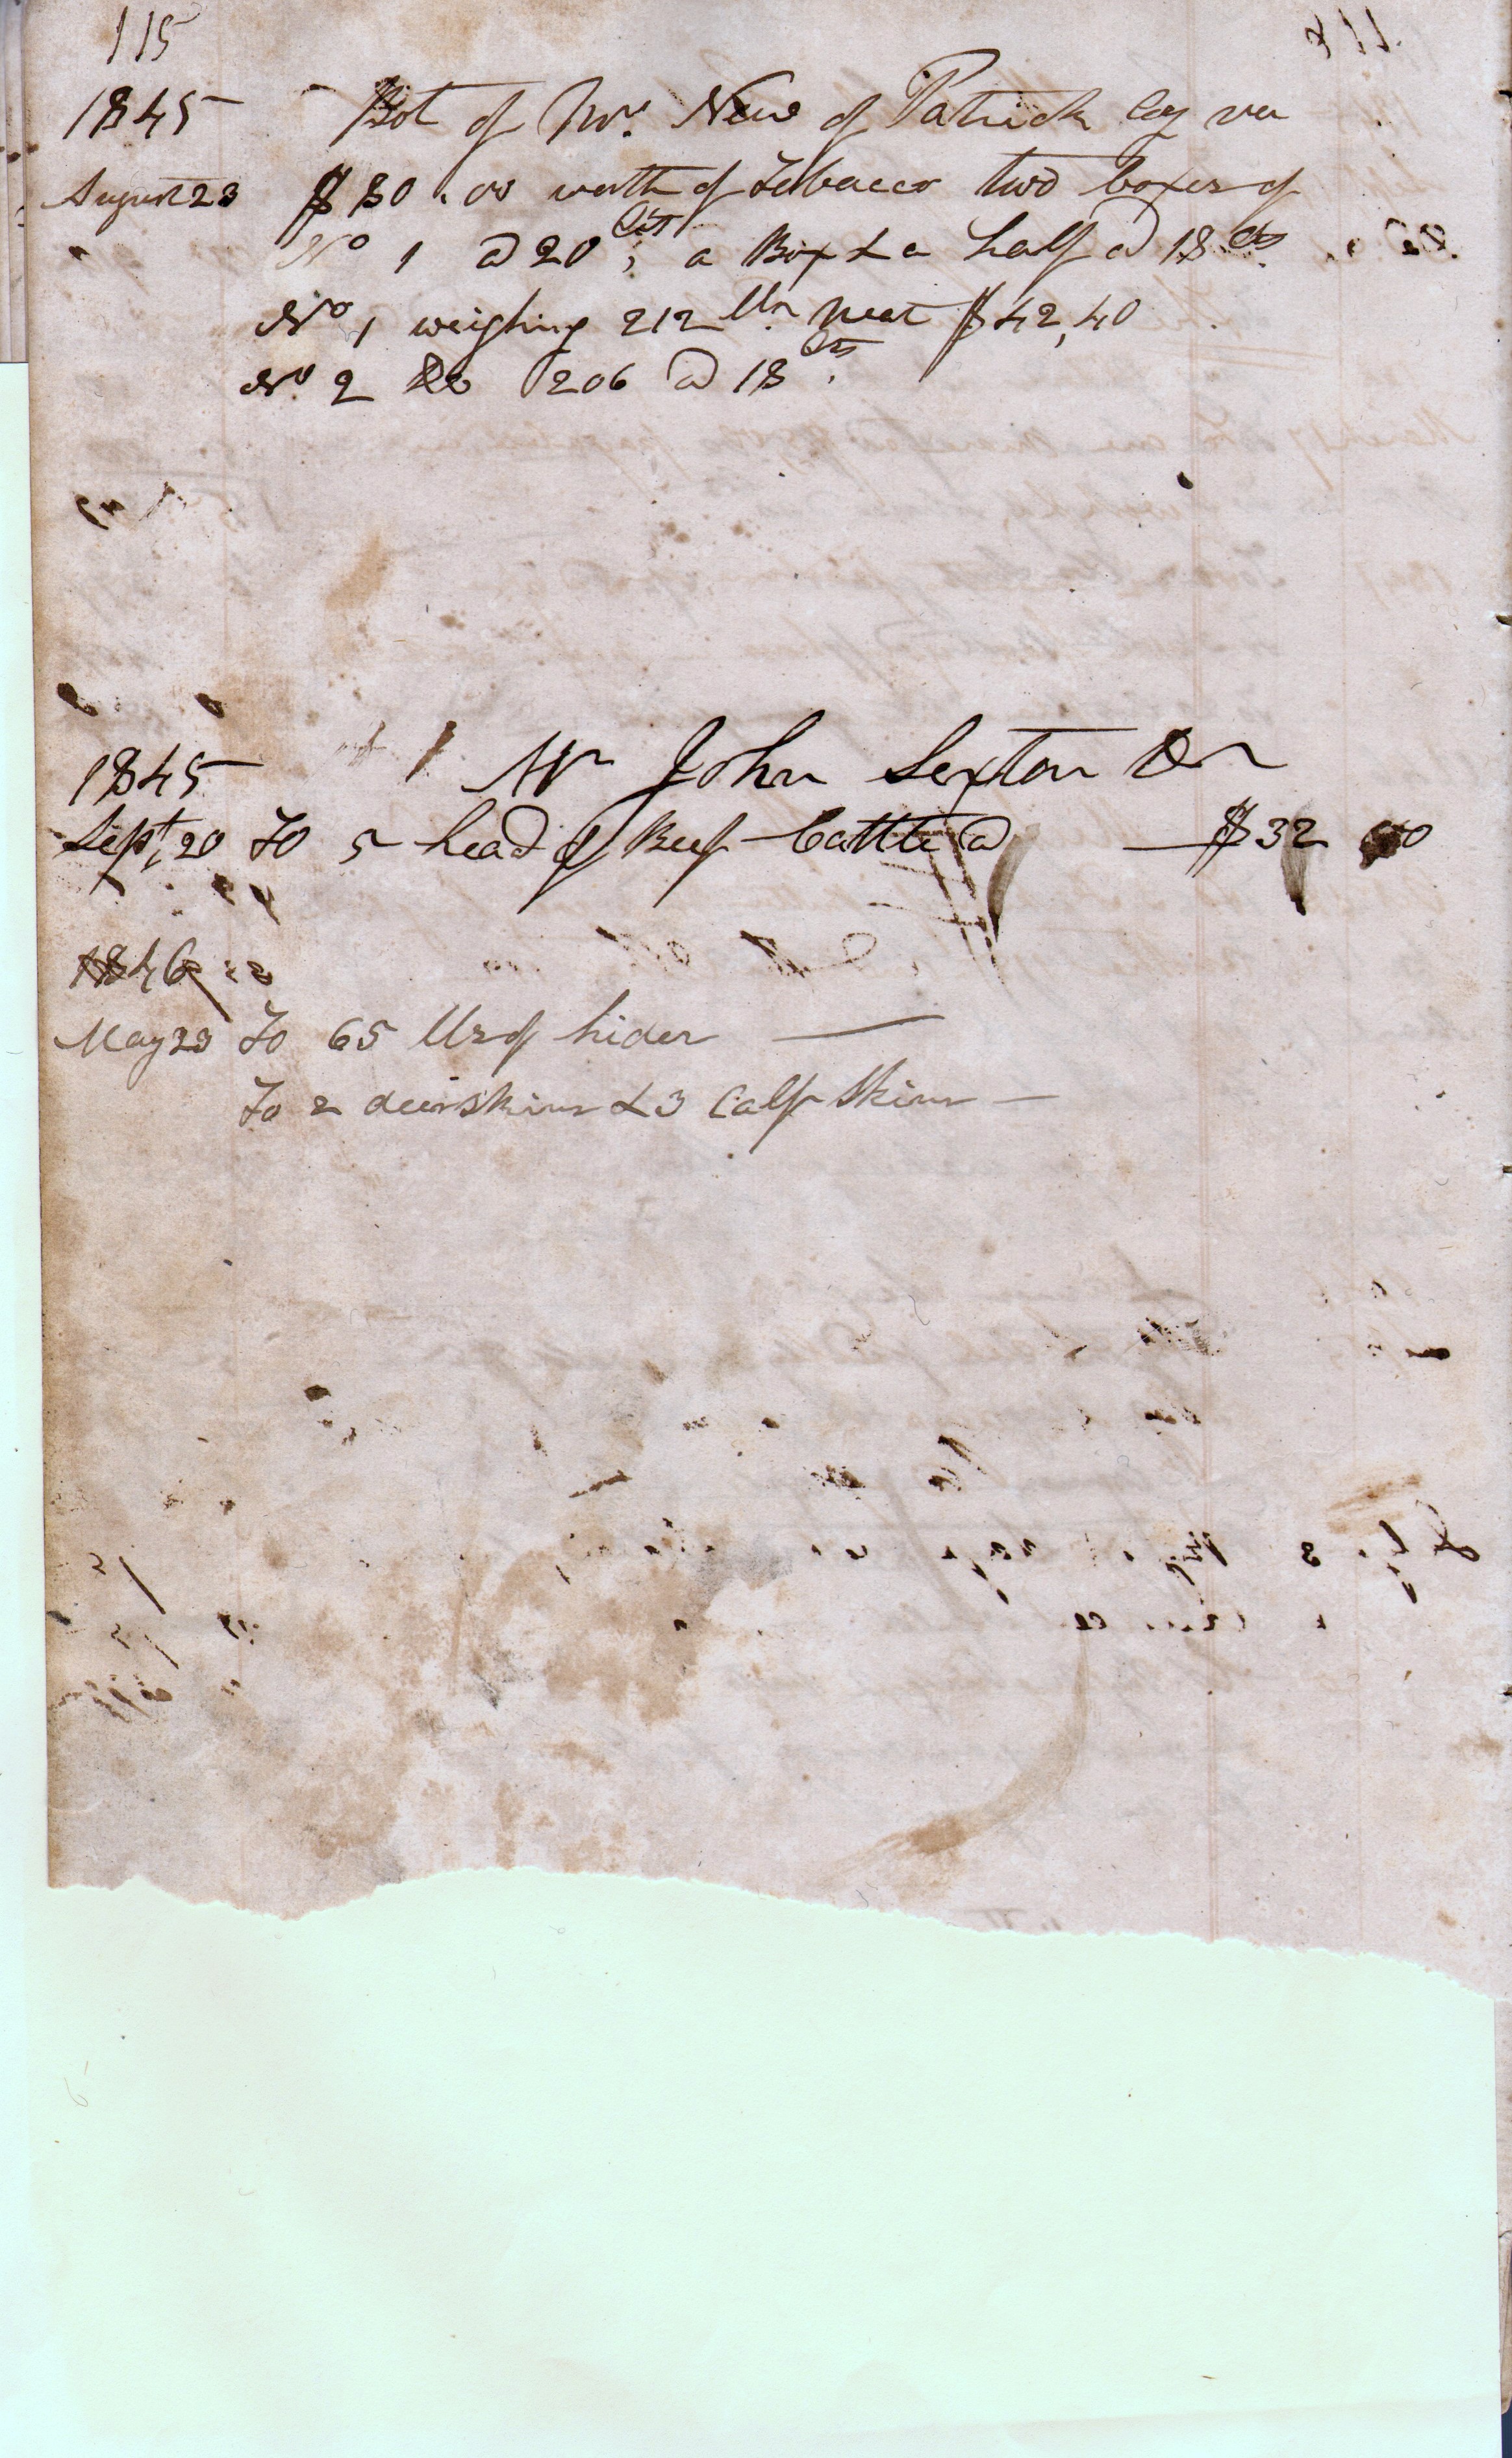 115
1845 Bot of Mr. New of Patrick Coy va
August 23 $80.00 worth of Tobacco two boxes of
No 1 @ 20 cts; a Box & a half @ 18 cts.
No 1 weighing 212 lbs. neat $42,40
No 2 Do 206 @ 18 cts.
1845 Mr John Sexton Dr
Sept, 20 To 5 head of Beef Cattle @ $32 00
1846
May 23 To 65 lbs of hides
To 2 deerskins & 3 Calf Skins